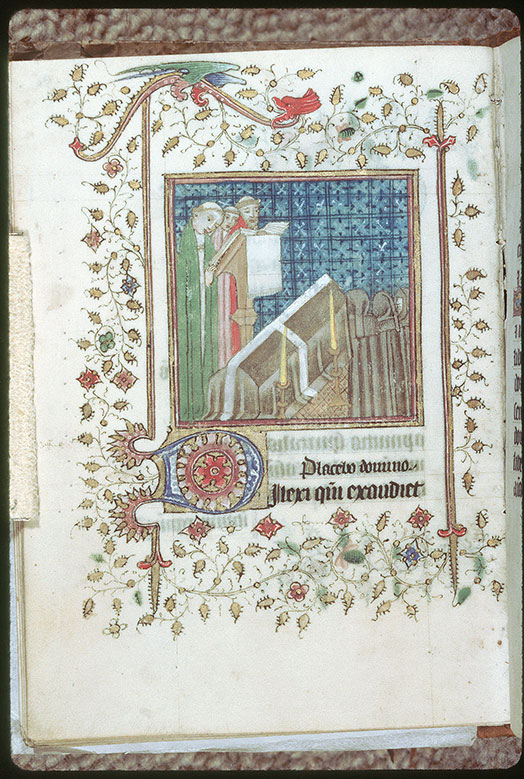 Placebo domino.
Dilexi qm̄ exaudiet